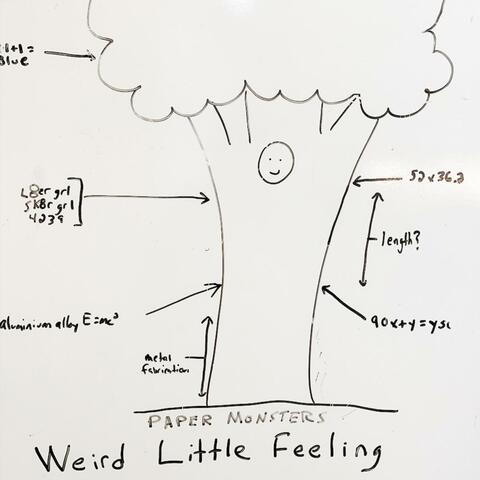 1+1=
Blue
L8er grl
SK8r grl
4239
52x36.2
length?
aluminium alloy E=mc³
90x+y=ysc
metal
fabrication
PAPER MONSTERS
Weird Little Feeling